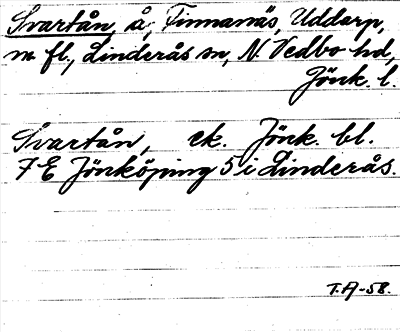 Svartån, å, Finnanäs, Uddarp,
m. fl., Linderås sn, N. Vedbo hd,
Jönk. l.
Svartån, ek. Jönk. bl.
7 E Jönköping 5 i Linderås.
T.A-58.